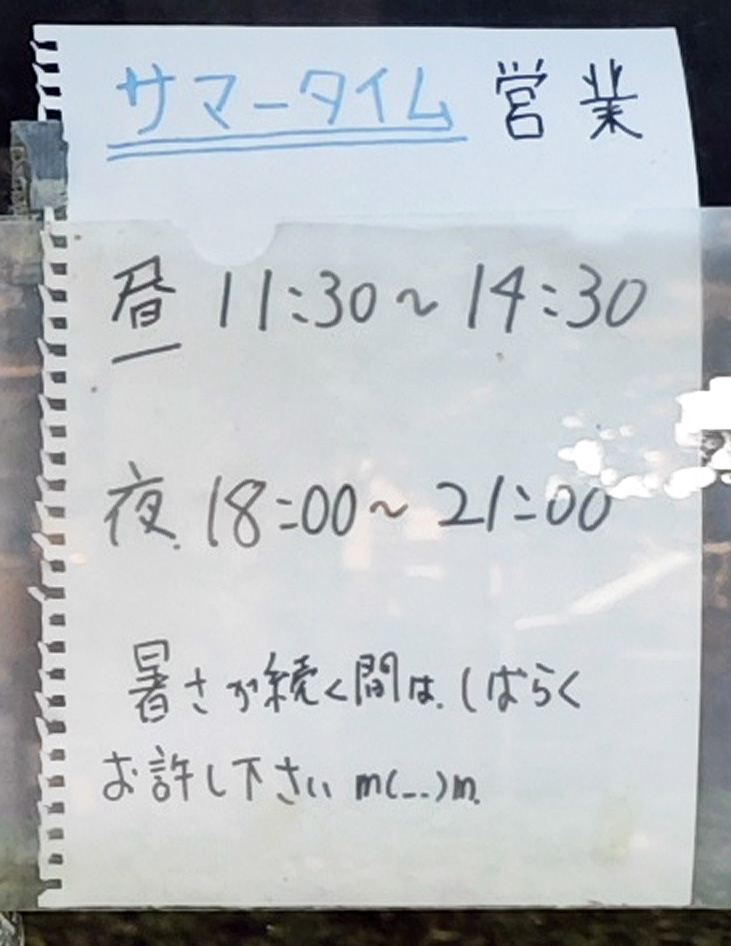 サマータイム営業
昼 11:30～14:30
夜 18:00～21:00
暑さが続く間は、しばらく
お許し下さい m(_ _)m